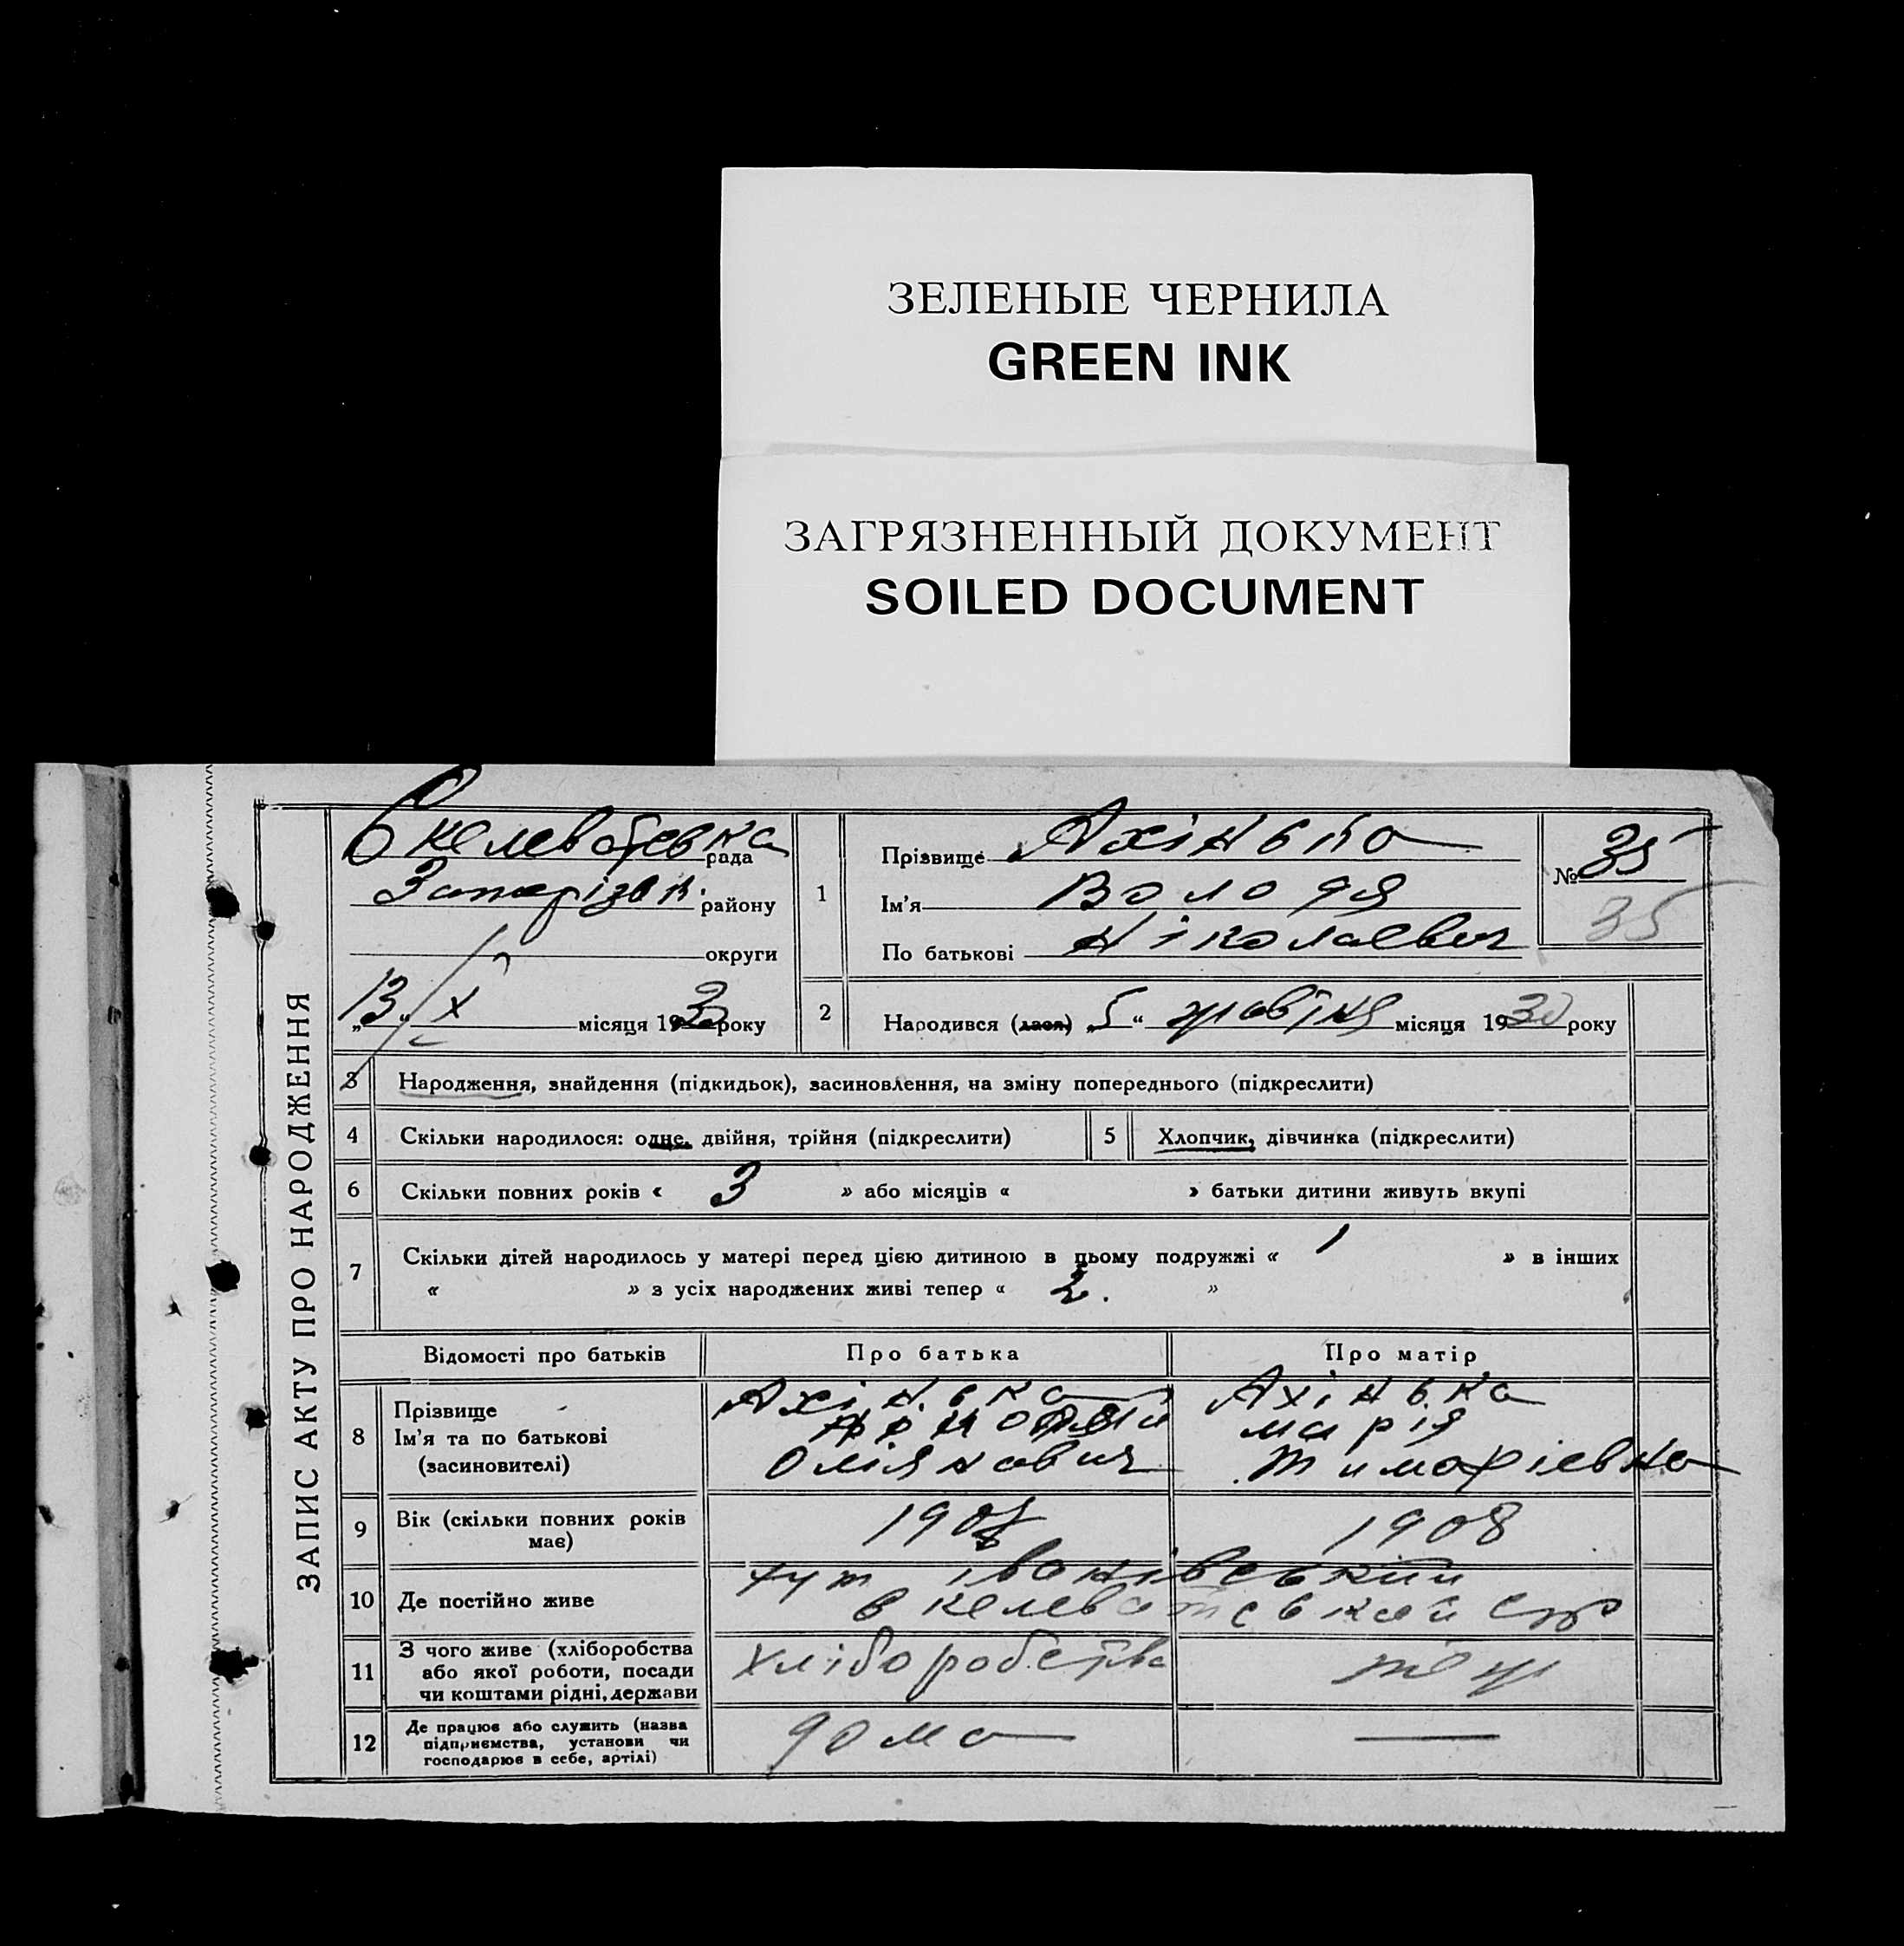 ЗЕЛЕНЫЕ ЧЕРНИЛА
GREEN INK
ЗАГРЯЗНЕННЫЙ ДОКУМЕНТ
SOILED DOCUMENT
ЗАПИС АКТУ ПРО НАРОДЖЕННЯ
рада
району
округи
„13“ X місяця 1930 року
1
Прізвище Ахінько
Ім’я Володя
По батькові Ніколаевич
№ 35
35
2 Народився (лася) „5“ жовтня місяця 1930 року
3 Народження, знайдення (підкидьок), засиновлення, на зміну попереднього (підкреслити)
4 Скільки народилося: одне, двійня, трійня (підкреслити)
5 Хлопчик, дівчинка (підкреслити)
6 Скільки повних років « 3 » або місяців « » батьки дитини живуть вкупі
7 Скільки дітей народилось у матері перед цією дитиною в цьому подружжі « 1 » в інших
« » з усіх народжених живі тепер « 2. »
Відомості про батьків Про батька Про матір
8 Прізвище
Ім’я та по батькові
(засиновителі)
Ахінька
Ахінька
Марія
9 Вік (скільки повних років
має)
1908
10 Де постійно живе
тут
11 З чого живе (хліборобства
або якої роботи, посади
чи коштами рідні, держави
хліборобства
12 Де працює або служить (назва
підприємства, установи чи
господарює в себе, артілі)
дома —